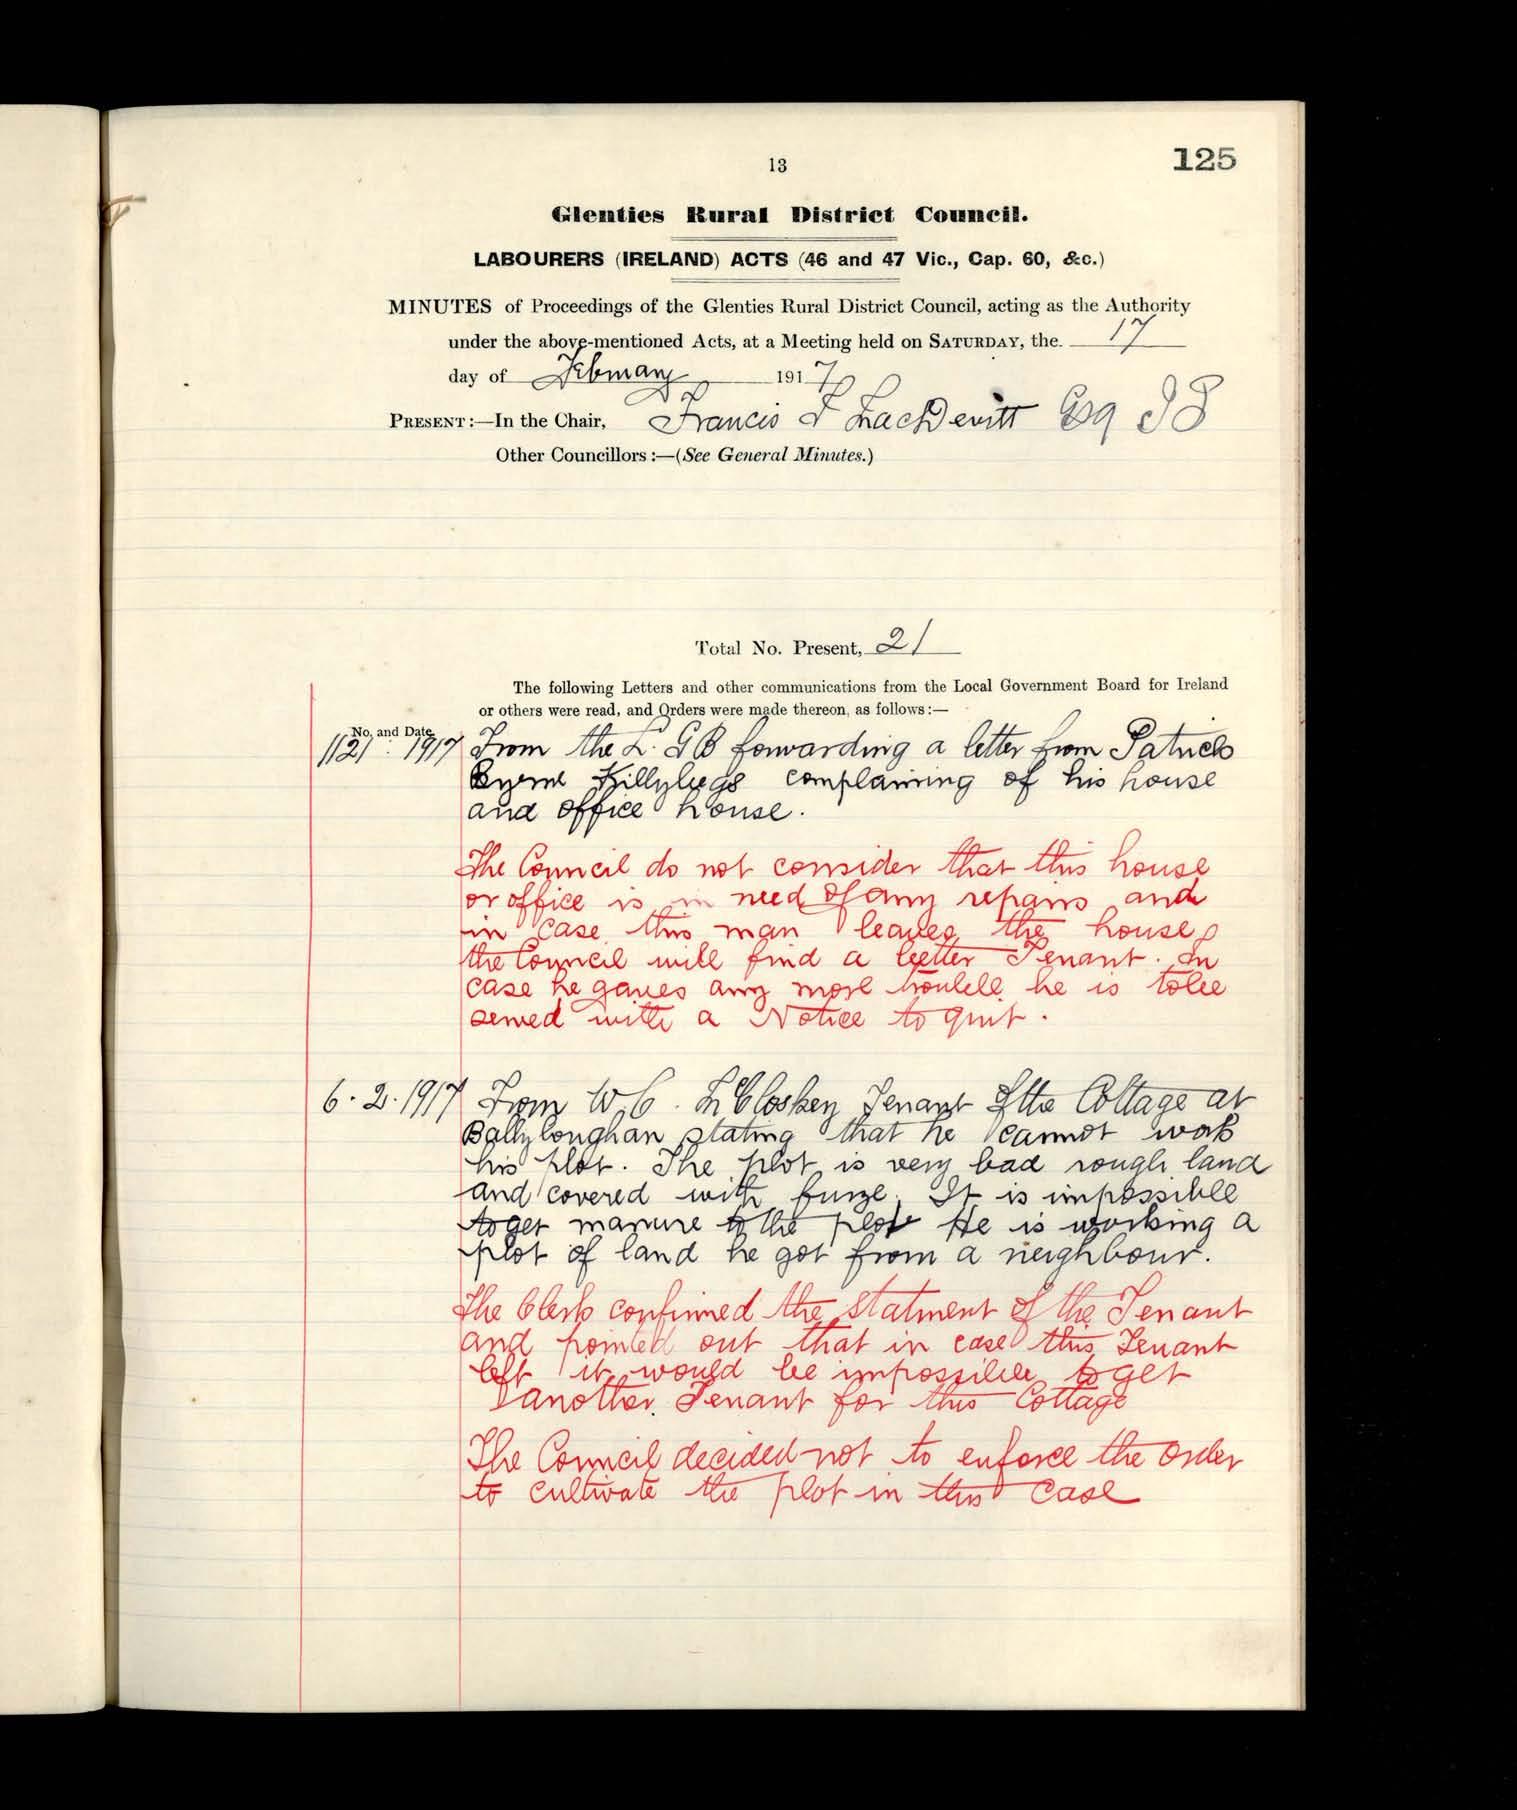 13
125
Glenties Rural District Council.
LABOURERS (IRELAND) ACTS (46 and 47 Vic., Cap. 60, &c.)
MINUTES of Proceedings of the Glenties Rural District Council, acting as the Authority
under the above-mentioned Acts, at a Meeting held on SATURDAY, the 17
day of February 1917
PRESENT:—In the Chair, Francis J MacDevitt Esq JP
Other Councillors:—(See General Minutes.)
Total No. Present, 21
The following Letters and other communications from the Local Government Board for Ireland
or others were read, and Orders were made thereon, as follows:—
No. and Date.
1917 From the L. G B forwarding a letter from Patrick
Byrne Killybegs complaining of his house
and office house.
The Council do not consider that this house
or office is in need of any repairs and
in case this man leaves the house
the Council will find a better Tenant. In
case he gaves any more trouble he is to be
served with a Notice to quit.
6.2.1917 From W. C. McCloskey Tenant of the Cottage at
Ballyloughan stating that he cannot work
his plot. The plot is very bad rough land
and covered with furze. It is impossible
to get manure to the plot He is working a
plot of land he got from a neighbour.
The Clerk confirmed the statment of the Tenant
and pointed out that in case this Tenant
left it would be impossible to get
another Tenant for this Cottage
The Council decided not to enforce the order
to cultivate the plot in this case